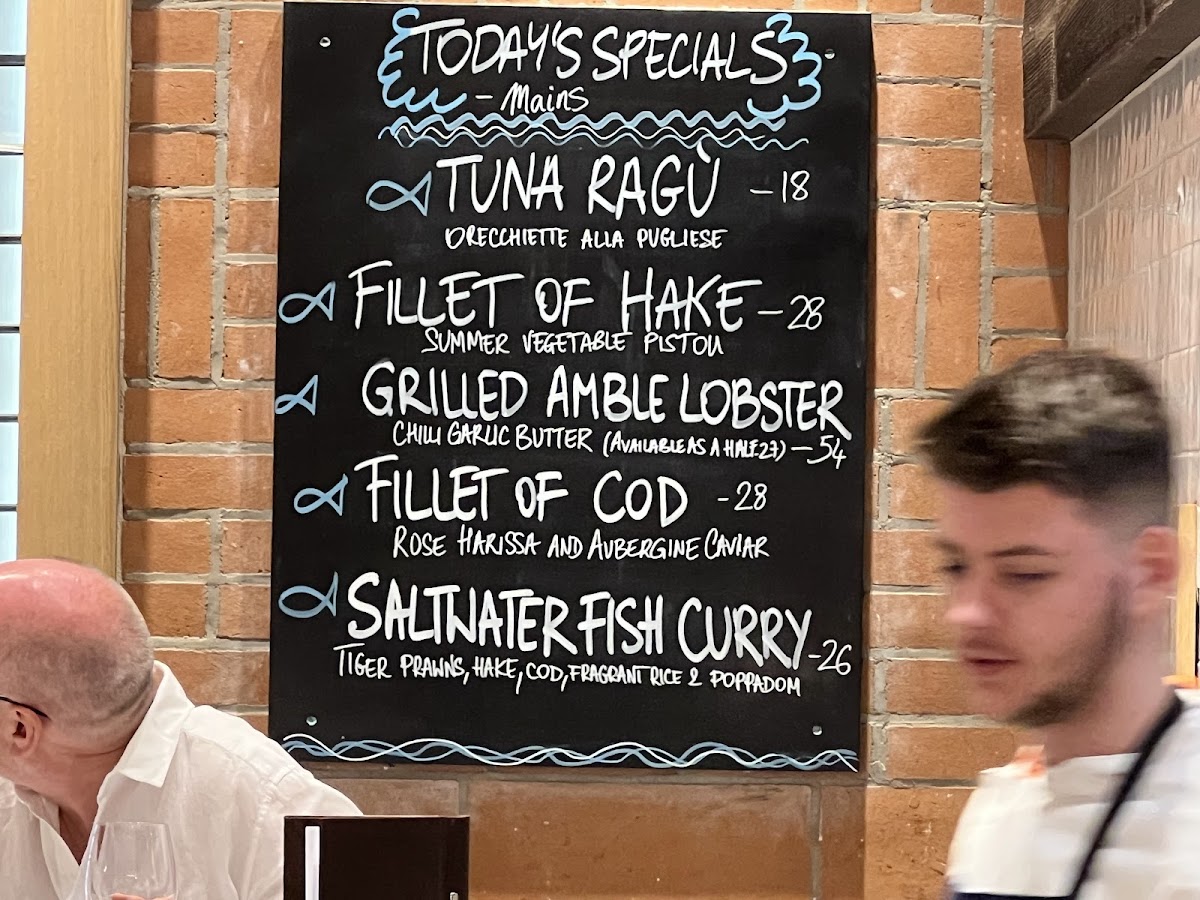 TODAY'S SPECIALS
- Mains
TUNA RAGÙ - 18
ORECCHIETTE ALLA PUGLIESE
FILLET OF HAKE - 28
SUMMER VEGETABLE PISTOU
GRILLED AMBLE LOBSTER
CHILLI GARLIC BUTTER (AVAILABLE AS A HALF 27) - 54
FILLET OF COD - 28
ROSE HARISSA AND AUBERGINE CAVIAR
SALTWATER FISH CURRY - 26
TIGER PRAWNS, HAKE, COD, FRAGRANT RICE & POPPADOM